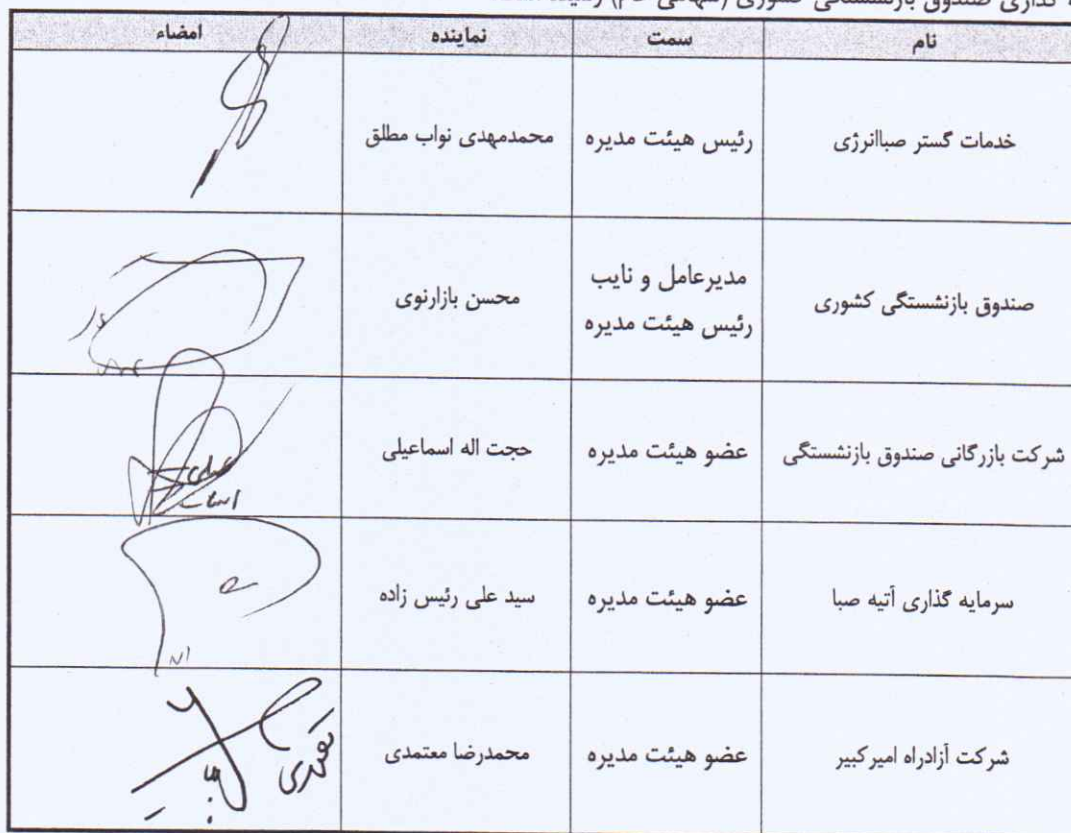 گذاری صندوق بازنشستگی کشوری (سهامی عام)
نام سمت نماینده امضاء
خدمات گستر صباانرژی رئیس هیئت مدیره محمدمهدی نواب مطلق
صندوق بازنشستگی کشوری مدیرعامل و نایب رئیس هیئت مدیره محسن بازارنوی
شرکت بازرگانی صندوق بازنشستگی عضو هیئت مدیره حجت اله اسماعیلی
سرمایه گذاری آتیه صبا عضو هیئت مدیره سید علی رئیس زاده
شرکت آزادراه امیرکبیر عضو هیئت مدیره محمدرضا معتمدی